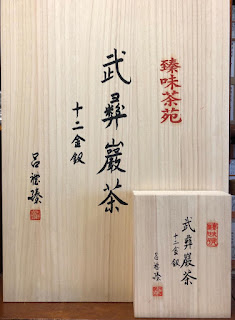 臻味茶苑
武彝巖茶
十二金釵
呂禮臻
武彝巖茶
十二金釵
呂禮臻